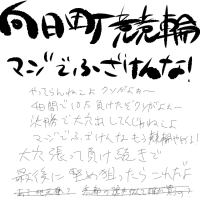 向日町競輪
マジでふざけんな!
やってらんねーよ クソがぁー
4日間で10万負けたぞクソがよぉー
決勝で大穴出してんじゃねーよ
マジでふざけんな もう競輪やめる!
大穴張って負け続きで
最後に堅め狙ったらこれだよ